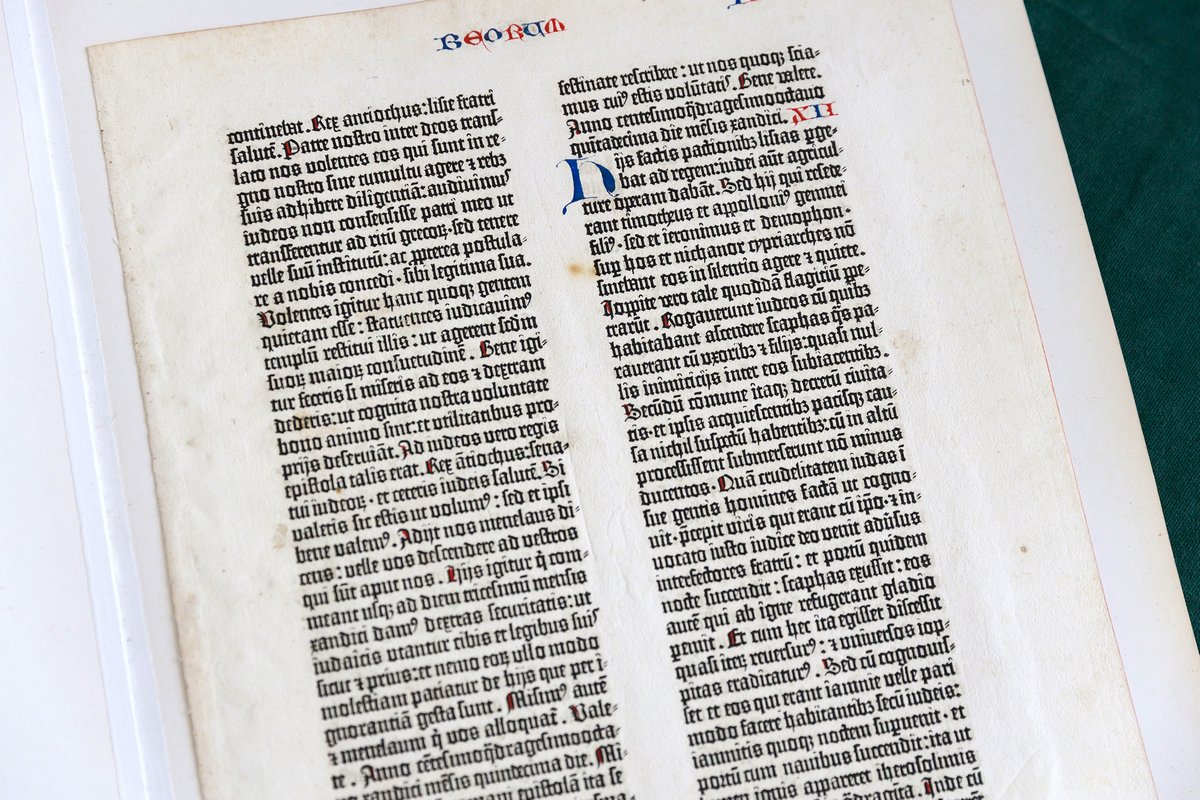 BEORUM
continebat. Rex antiochus: lisie fratri
salutē. Patre nostro inter deos trans-
lato nos volentes eos qui sunt in re-
gno nostro sine tumultu agere ⁊ rebꝫ
suis adhibere diligentiā: audiuimꝰ
iudeos non consensisse patri meo ut
transferentur ad ritū grecoꝝ· sed tenere
velle suū institutū: ac ꝓpterea postula-
re a nobis concedi· sibi legitima sua.
Volentes igitur hanc quoqꝫ gentem
quietam esse: statuentes iudicauimꝰ
templū restitui illis: ut agerent scdm̄
suoꝝ maioꝝ consuetudinē. Bene igi-
tur feceris si miseris ad eos ⁊ dextram
dederis: ut cognita nostra voluntate
bono animo sint: et vtilitatibus pro-
prijs deseruiāt. Ad iudeos vero regis
epistola talis erat. Rex ātiochus: sena-
tui iudeoꝝ· et ceteris iudeis salutē. Si
valetis sic estis ut volumꝰ: sed et ipsi
bene valemꝰ. Adijt nos menelaus di-
cens: velle vos descendere ad vestros
qui sūt aput nos. Hijs igitur q̇ com-
meant usqꝫ ad diem tricesimū mensis
xandici damꝰ dextras securitatis: ut
iudaicis utantur cibis et legibus suis
sicut ⁊ prius: et nemo eoꝝ ullo modo
molestiam paciatur de hijs que per i-
gnorantiā gesta sunt. Misimꝰ autē
⁊ menelaum q̇ vos alloquat̄. Vale-
te. Anno cētesimoq̄dragesimoocta-
xandici mēsis quintecima die. Mi-
epistolā ita se
festinate rescribere: ut nos quoqꝫ scia-
mus cuiꝰ estis volūtatis. Bene valete.
Anno centesimoq̄dragesimooctauo
quītadecima die mēsis xandici. XII
Hijs factis pactionibꝫ lisias ꝑge-
bat ad regem: iudei aūt agricul-
ture opam dabāt. Sed hij qui resede-
rant timotheus et appolloniꝰ gennei
filiꝰ· sed et ieronimus et demophon·
suꝑ hos et nichanor cypriarches nō
sinebant eos in silentio agere ⁊ quiete.
Ioppite vero tale quoddā flagiciū ꝑpe-
trarūt. Rogauerunt iudeos cū quibꝫ
habitabant ascendere scaphas q̄s pa-
rauerant cū vxoribꝫ ⁊ filijs: quasi nul-
lis inimicicijs inter eos subiacentibꝫ.
Secūdū cōmune itaqꝫ decretū ciuita-
tis· et ipsis acquiescentibꝫ pacisqꝫ cau-
sa nichil suspectū habentibꝫ: cū in altū
processissent submerserunt nō minus
ducentos. Quā crudelitatem iudas ī
sue gentis homines factā ut cogno-
uit· p̄cepit viris qui erant cū ip̄o· ⁊ in-
uocato iusto iudice deo venit adūsus
interfectores fratrū: et portū quidem
nocte succendit: scaphas exussit: eos
autē qui ab igne refugerant gladio
ꝑemit. Et cum hec ita egisset discessit
quasi iteꝝ reuersurꝰ: ⁊ vniuersos iop-
pitas eradicaturꝰ. Sed cū cognouis-
set et eos qui erant iamnie velle pari
modo facere habitantibꝫ secū iudeis:
iamnitis quoqꝫ noctem supuenit· et
portū cum nauibus succendit: ita ut
lumen ignis appareret iherosolimis
Inde cū